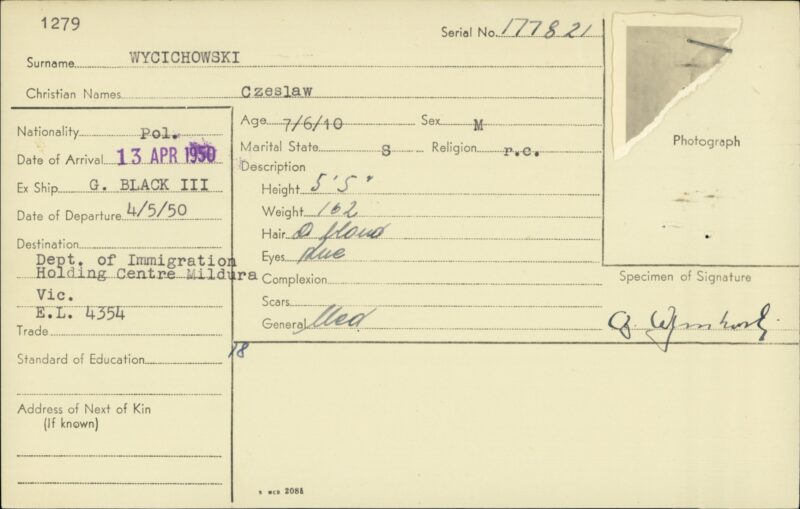 1279
Serial No. 177821
Surname WYCICHOWSKI
Christian Names Czeslaw
Nationality Pol.
Date of Arrival 13 APR 1950
Ex Ship G. BLACK III
Date of Departure 4/5/50
Destination
Dept. of Immigration
Holding Centre Mildura
Vic.
E.L. 4354
Trade
Standard of Education
18
Address of Next of Kin
(If known)
Age 7/6/10 Sex M
Marital State S Religion r.c.
Description
Height 5'5"
Weight 162
Hair D blond
Eyes blue
Complexion
Scars
General Med
Photograph
Specimen of Signature
2084